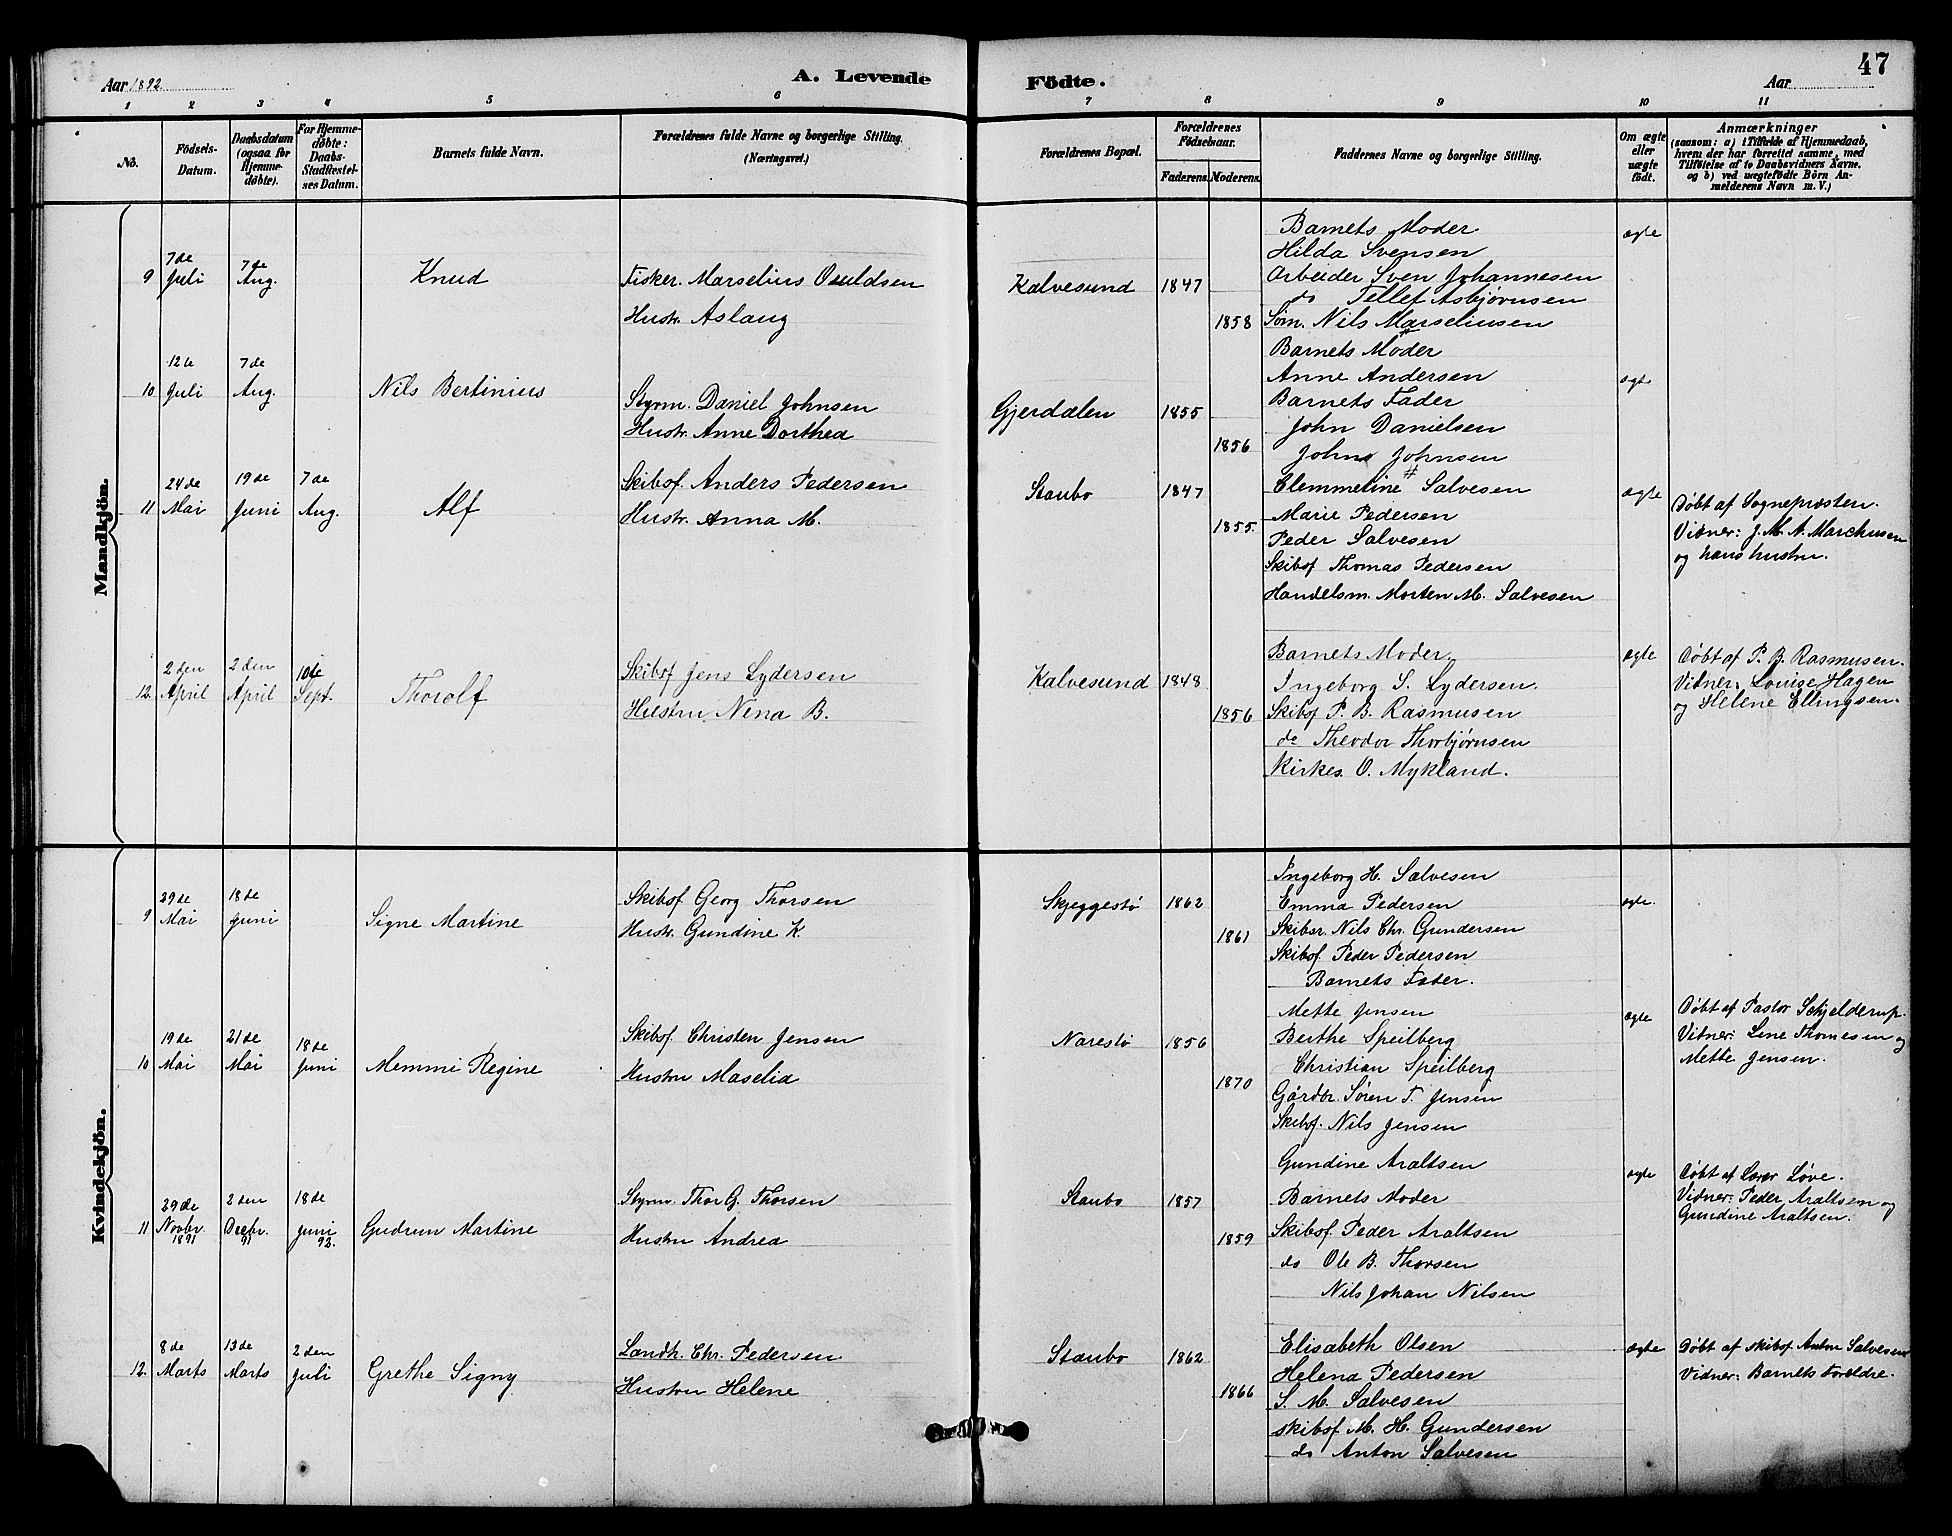 Aar 1892
A. Levende
Födte.
Aar
47
1 2 3 4 5 6 7 8 9 10 11
No.
Födsels-Datum.
Daabsdatum (ogsaa for Hjemme-døbte).
For Hjemme-døbte: Daabs-Stadfæstel-ses Datum.
Barnets fulde Navn.
Forældrenes fulde Navne og borgerlige Stilling. (Næringsvei.)
Forældrenes Bopæl.
Forældrenes Födselsaar.
Faderens. Moderens.
Faddernes Navne og borgerlige Stilling.
Om ægte eller uægte født.
Anmærkninger
(saasom: a) i Tilfælde af Hjemmedaab,
hvem der har forrettet samme, med
Tilföielse af to Daabsvidners Navne.
og b) ved uægtefödte Börn An-
melderens Navn m. V.)
Mandkjön.
9 7de Juli 7de Aug. Knud
Fisker. Marselius Ouldsen
Hustr. Aslaug
Kalvesund 1847
1858
Barnets Moder
Hilda Svensen
Arbeider Sven Johannesen
do Tellef Asbjørnsen
Søm. Nils Marseliusen
ægte
10 12te Juli 7de Aug. Nils Bertinius
Styrm. Daniel Johnsen
Hustr. Anne Dorthea
Gjerdalen 1855
1856
Barnets Moder
Anne Andersen
Barnets Fader
John Danielsen
Johns Johnsen
ægte
11 24de Mai 19de Juni 7de Aug. Alf
Skibsf. Anders Pedersen
Hustr. Anna M.
Staubo 1847
1855.
Clemmetine Salvesen
Marie Pedersen
Peder Salvesen
Skibsf Thomas Pedersen
Handelsm. Morten M. Salvesen
ægte
Døbt af Sognepræsten.
Vidner: J. M. A. Marchusen
og hans hustru.
12. 2den April 2den April 10de Sept. Thorolf
Skibsf Jens Lydersen
Hustru Nena B.
Kalvesund 1848
1856
Barnets Moder
Ingeborg S. Lydersen.
Skibsf P. B. Rasmusen
do Theodor Thorbjørnsen
Kirkes. O. Mykland.
ægte
Døbt af P. B. Rasmusen.
Vidner: Louise Hagen
og Helene Ellingsen.
Kvindekjön.
9 29de Mai 18de Juni Signe Martine
Skibsf Georg Thorsen
Hustr. Gundine K.
Skjeggestø 1862
1861
Ingeborg H. Salvesen
Emma Pedersen
Skibsr. Nils Chr. Gundersen
Skibsf. Peder Pedersen
Barnets Fader.
ægte.
10 19de Mai 21de Mai 18de Juni Memmi Regine
Skibsf. Christen Jensen
Hustru Maselia
Narestø 1856
1870
Mette Jensen
Berthe Speilberg
Christian Speilberg
Gårdbr. Søren T. Jensen
Skibsf. Nils Jensen
ægte
Døbt af Pastor Schjelderup.
Vidner: Lene Thomesen og
Mette Jensen.
11 29de Novbr. 1891 2den Decbr. 91 18de Juni 92. Gudrun Martine
Styrm. Thor G. Thorsen
Hustru Andrea
Staubo 1857
1859
Gundine Araltsen
Barnets Moder
Skibsf. Peder Araltsen
do Ole B. Thorsen
Nils Johan Nilsen
ægte
Døbt af Lærer Løve.
Vidner: Peder Araltsen og
Gundine Araltsen.
12. 8de Marts 13de Marts 2den Juli Grethe Signy
Landh. Chr. Pedersen
Hustru Helene
Staubo 1862
1866
Elisabeth Olsen
Helena Pedersen
S. M. Salvesen
skibsf M. H. Gundersen
do Anton Salvesen
ægte
Døbt af skibsf Anton Salvesen
Vidner: Barnets Forældre.